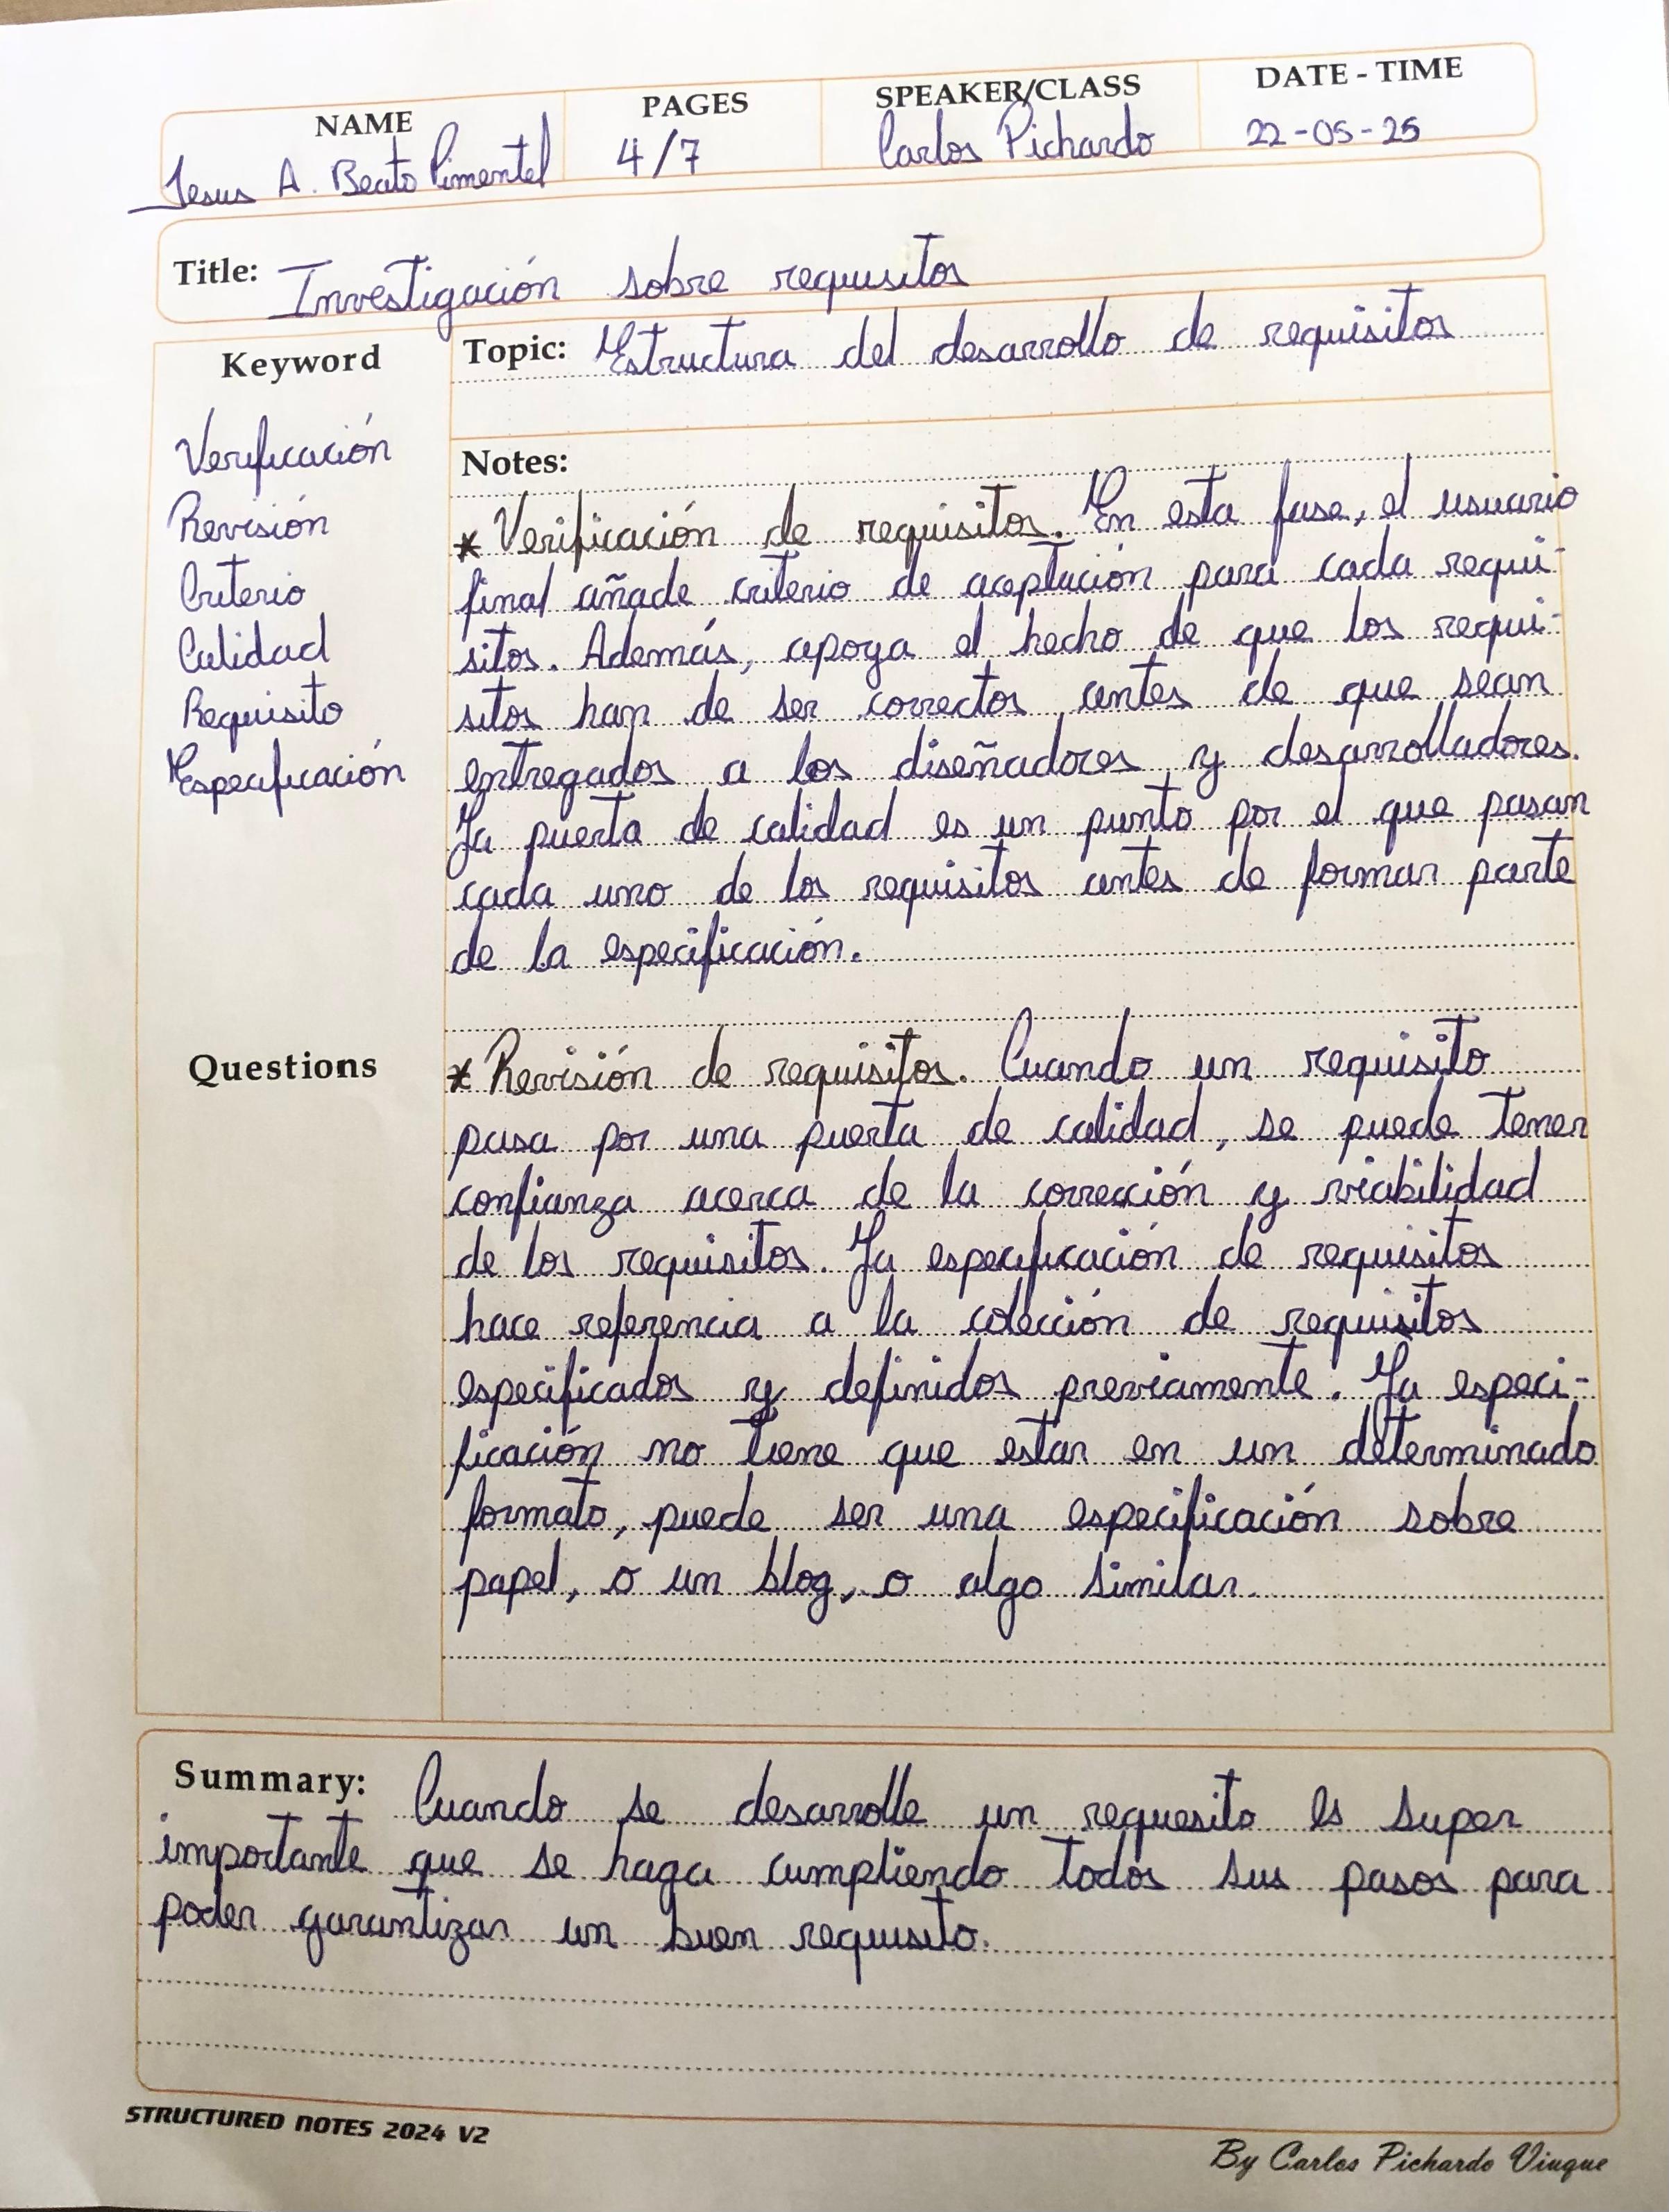 NAME
PAGES
SPEAKER/CLASS
DATE - TIME
Jesus A. Beato Pimentel
4/7
Carlos Pichardo
22-05-25
Title: Investigación sobre requisitos
Keyword
Verificación
Revisión
Criterio
Calidad
Requisito
Especificación
Topic: Estructura del desarrollo de requisitos
Notes:
* Verificación de requisitos. En esta fase, el usuario
final añade criterio de aceptación para cada requi-
sitos. Además, apoya el hecho de que los requi-
sitos han de ser correctos antes de que sean
entregados a los diseñadores y desarrolladores.
La puerta de calidad es un punto por el que pasan
cada uno de los requisitos antes de formar parte
de la especificación.
Questions
* Revisión de requisitos. Cuando un requisito
pasa por una puerta de calidad, se puede tener
confianza acerca de la corrección y viabilidad
de los requisitos. La especificación de requisitos
hace referencia a la colección de requisitos
especificados y definidos previamente. La especi-
ficación no tiene que estar en un determinado
formato, puede ser una especificación sobre
papel, o un blog, o algo similar.
Summary: Cuando se desarrolle un requesito es super
importante que se haga cumpliendo todos sus pasos para
poder garantizar un buen requisito.
STRUCTURED NOTES 2024 V2
By Carlos Pichardo Viuque